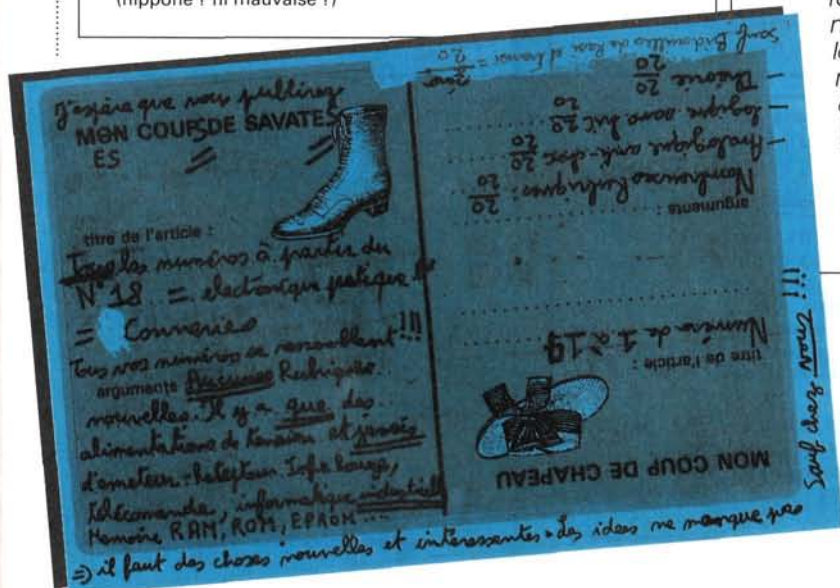 (nippone ? ni mauvaise ?)
J'espère que vous publirez
MON COUPS DE SAVATES
ES
titre de l'article :
Tous les numéros à partir du
N° 18 = électronique pratique !!!
= Conneries
Tous vos numéros se ressemblent !!!
arguments Aucunes Rubriques
nouvelles. Il y a que des
alimentations de tension et jamais
d'emeteur-recepteur Infra Rouge,
télécomande, informatique industriell
Memoire RAM, ROM, EPROM ...
=> il faut des choses nouvelles et interessentes. Les idées ne manque pas
Sauf chez vous !!!
MON COUP DE CHAPEAU
titre de l'article :
Numéro de 1 à 17
arguments :
Nombreuses Rubriques : 20/20
- Analogique anti-choc 20/20
- logique sans hic 20/20
- Théorie 20/20
Sauf Bidouilles de Rési et Transi = zéro/20